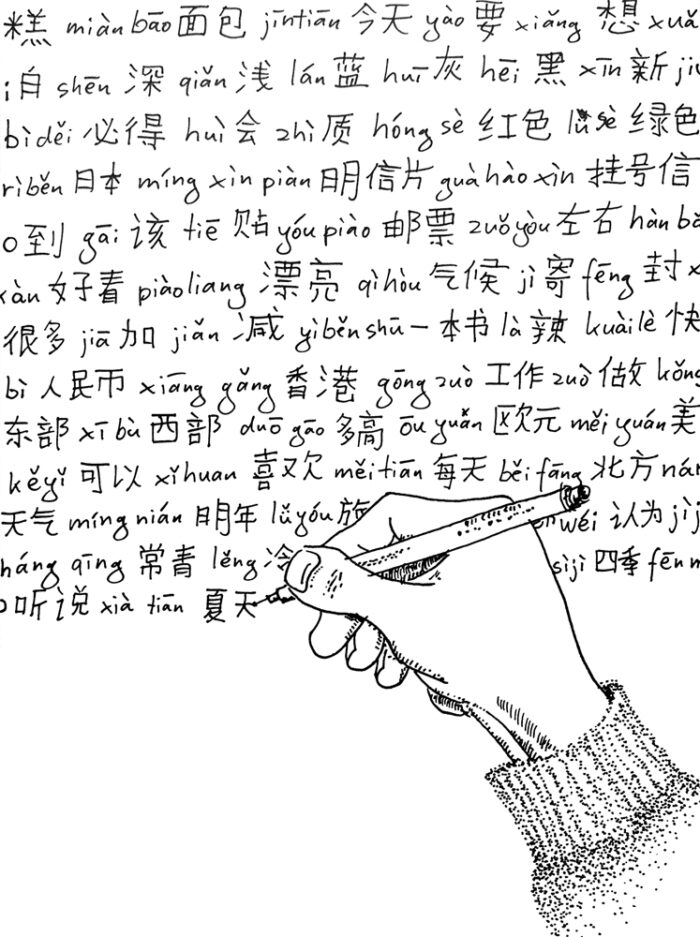 糕 miànbāo 面包 jīntiān 今天 yào 要 xiǎng 想 xuǎ
自 shēn 深 qiǎn 浅 lán 蓝 huī 灰 hēi 黑 xīn 新 jiù
bìděi 必得 huì 会 zhì 质 hóng sè 红色 lǜ sè 绿色
rìběn 日本 míng xìn piàn 明信片 guà hào xìn 挂号信
o 到 gāi 该 tiē 贴 yóupiào 邮票 zuǒyòu 左右 hàn bǎ
kàn 好看 piàoliang 漂亮 qìhòu 气候 jì 寄 fēng 封 x
很多 jiā 加 jiǎn 减 yìběnshū 一本书 là 辣 kuàilè 快
bì 人民币 xiāng gǎng 香港 gōng zuò 工作 zuò 做 kǒng
东部 xī bù 西部 duō gāo 多高 ōu yuán 欧元 měi yuán 美
kěyǐ 可以 xǐhuan 喜欢 měitiān 每天 běifāng 北方 nán
天气 míng nián 明年 lǚyóu 旅 wéi 认为 jìj
háng qīng 常青 lěng 冷 sìjì 四季 fēn m
听说 xià tiān 夏天